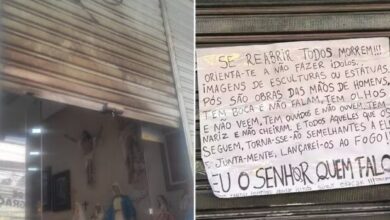 SE REABRIR TODOS MORREM!!!
ORIENTA-TE A NÃO FAZER ÍDOLOS..
IMAGENS DE ESCULTURAS OU ESTATUAS
PÓS SÃO OBRAS DAS MÃOS DE HOMENS.
TEM BOCA E NÃO FALAM, TEM OLHOS
E NÃO VEEM. TEM OUVIDOS E NÃO OUVEM. TEM
NARIZ E NÃO CHEIRAM. E TODOS AQUELES QUE OS
SEGUEM, TORNA-SE-ÃO SEMELHANTES A ELES
E JUNTA-MENTE, LANÇAREI-OS AO FOGO!
EU O SENHOR QUEM FALO